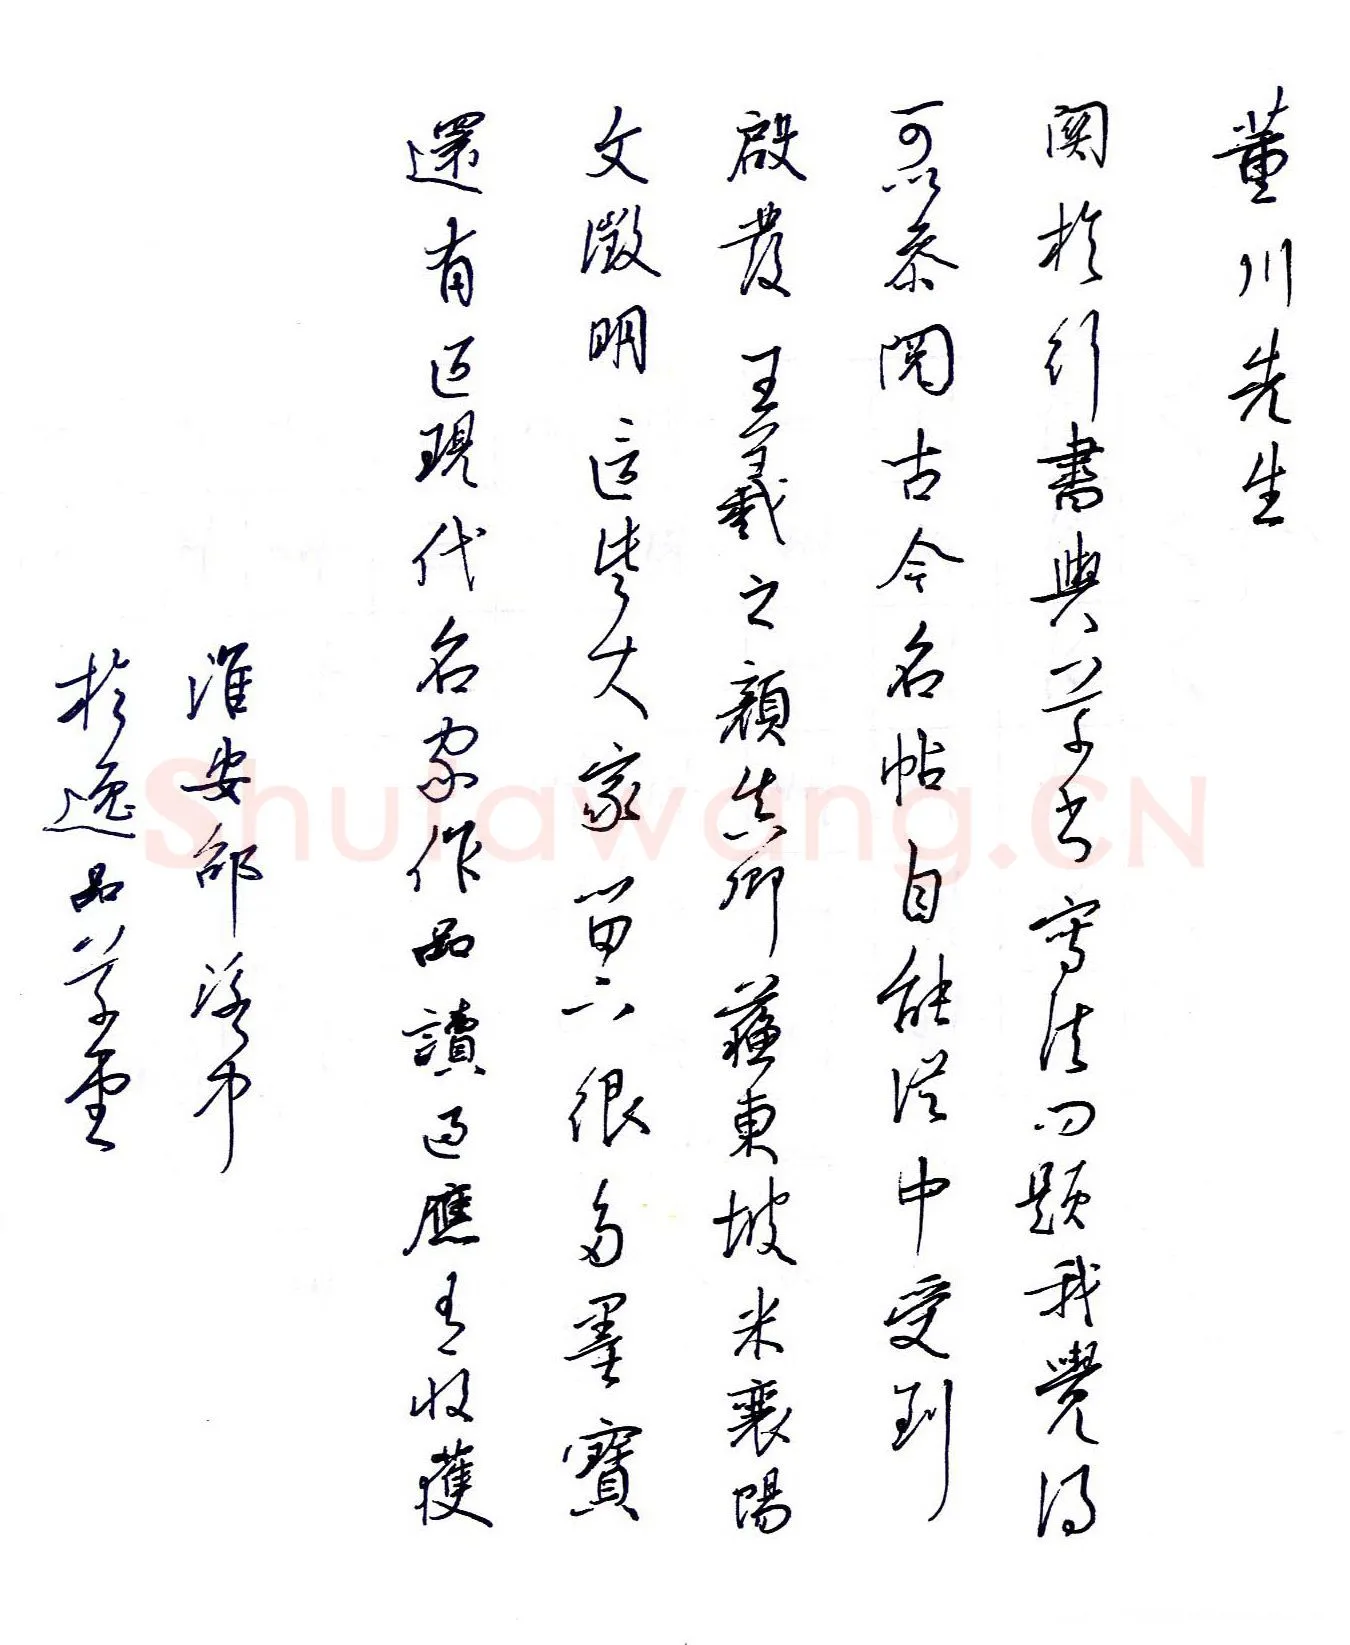 董川先生
關於行書與草书寫法问題我覺得
可以参閱古今名帖自能從中受到
啟發王羲之顏真卿蘇東坡米襄陽
文徵明這些大家留下很多墨寶
還有近現代名家作品讀過應有收獲
淮安邵 巾
於逸品草堂
Shufawang.CN